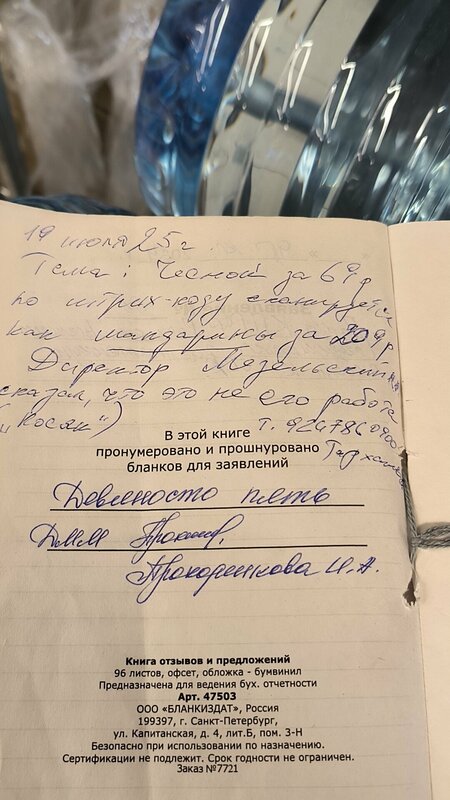 19 июля 25 г
Тема: Чеснок за 69 р
по штрих-коду сканируется
как мандарины за 209 р
Директор
сказал, что это не его работа
("косяк")
В этой книге
пронумеровано и прошнуровано
бланков для заявлений
Девяносто пять
ДММ
И.А.
Книга отзывов и предложений
96 листов, офсет, обложка - бумвинил
Предназначена для ведения бух. отчетности
Арт. 47503
ООО «БЛАНКИЗДАТ», Россия
199397, г. Санкт-Петербург,
ул. Капитанская, д. 4, лит.Б, пом. 3-Н
Безопасно при использовании по назначению.
Сертификации не подлежит. Срок годности не ограничен.
Заказ №7721